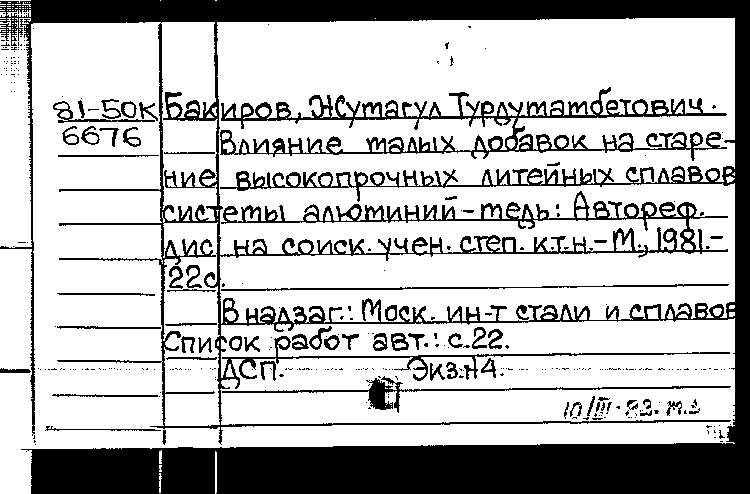 81-50К Бакиров, Жутагул Турдуматбетович.
6676 Влияние малых добавок на старе-
ние высокопрочных литейных сплавов
системы алюминий-медь: Автореф.
дис на соиск. учен. степ. к.т.н.-М., 1981.-
22с.
В надзаг.: Моск. ин-т стали и сплавов
Список работ авт.: с.22.
ДСП. Экз.№4.
10/III-82.